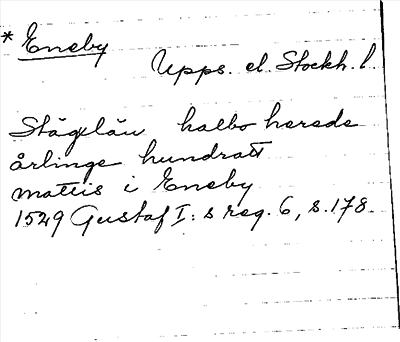 * Eneby
Upps. el. Stockh. l.
Stägelän halbo herede
årlinge hundratt
mattis i Eneby
1529 Gustaf I: s reg. 6, s. 178.